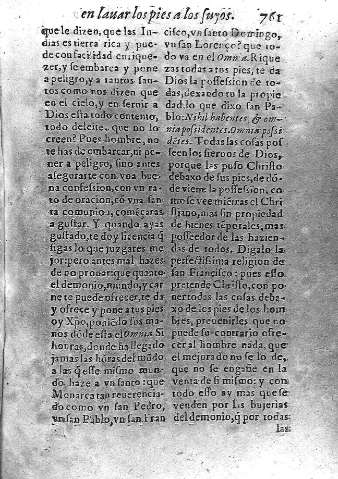 en lauar los pies a los suyos. 761
que le dizen, que las In-
dias es tierra rica y pue-
de con facilidad enrique-
zer, y se embarca y pone
a peligro, y a tantos sun-
tos como nos dizen que
en el cielo, y en seruir a
Dios està todo contento,
todo deleite, que no lo
creen? Pues hombre, no
te has de embarcar, ni po-
ner a peligro, sino antes
assegurarte con vna bue-
na confession, con vn ra-
to de oracion, cō vna san
ta comuniō, començaras
a gustar. Y quando ayas
gustado, te doy licencia q̃
sigas lo que juzgares me
jor: pero antes mal hazes
de no prouar que quanto
el demonio, mundo, y car
ne te puede ofrecer, te da
y ofrece y pone a tus pies
oy Xp̄o, poniēdo sus ma
nos dōde està el Omnia. Si
honras, donde ha llegado
jamas las hōras del mūdo
a las q̃ esse mismo mun
do haze a vn santo: que
Monarca tan reuerencia-
do como vn san Pedro,
vn san Pablo, vn san Fran
cisco, vn santo Domingo,
vn san Lorenço? que to-
do va en el Omnia. Rique
zas todas a tus pies, te da
Dios la possession de to-
das, dexando tu la propie
dad. lo que dixo san Pa-
blo: Nihil habentes, & om-
nia possidentes. Omnia possi
dētes. Todas las cosas pos
seen los sieruos de Dios,
porque las puso Christo
debaxo de sus pies, de dō
de viene la possession, co
mo se vee mientras el Chri
stiano, mas sin propiedad
de bienes tēporales, mas
possedor de las hazien-
das de todos. Digalo la
perfectissima religion de
san Francisco: pues esto
pretende Christo, con po
ner todas las cosas deba-
xo de los pies de los hom
bres, preuenirles que no
puede su contrario ofre-
cer al hombre nada, que
el mejorado no se lo de,
que no se engañe en la
venta de si mismo: y con
todo esso ay mas que se
venden por las bujerias
del demonio, q̃ por todas
las